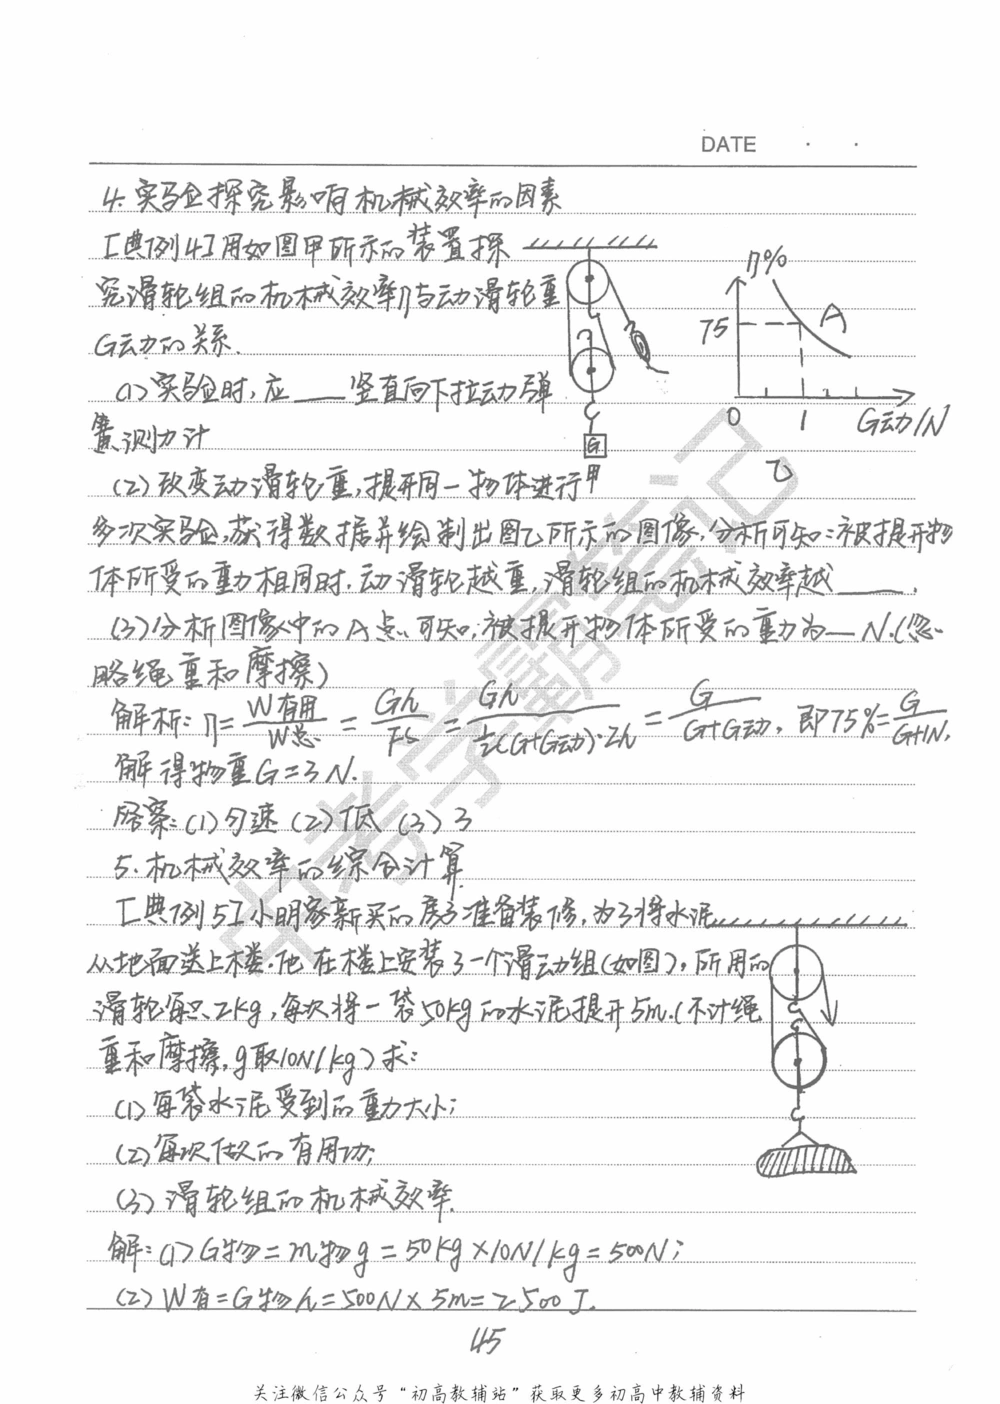 DATE · ·
4. 实验探究影响机械效率的因素
[典例4]用如图甲所示的装置探
究滑轮组的机械效率η与动滑轮重
G动的关系.
(1)实验时,应____竖直向下拉动弹
簧测力计
(2)改变动滑轮重,提升同一物体进行
多次实验,获得数据并绘制出图乙所示的图像,分析可知:被提升物
体所受的重力相同时.动滑轮越重,滑轮组的机械效率越____.
(3)分析图像中的A点.可知,被提升物体所受的重力为__N.(忽
略绳重和摩擦)
解析:η=W有用/W总=Gh/Fs=Gh/½(G+G动)·2h=G/G+G动,即75%=G/G+1N,
解得物重G=3N.
答案:(1)匀速 (2)低 (3)3
G
甲
η%
75
A
0 1 G动/N
乙
5.机械效率的综合计算
[典例5]小明家新买的房子准备装修,为了将水泥
从地面送上楼.他在楼上安装了一个滑动组(如图),所用的
滑轮每只2kg,每次将一袋50kg的水泥提升5m.(不计绳
重和摩擦,g取10N/kg)求:
(1)每袋水泥受到的重力大小;
(2)每次做的有用功;
(3)滑轮组的机械效率.
解:(1)G物=m物g=50kg×10N/kg=500N;
(2)W有=G物h=500N×5m=2500J.
45
中考学霸笔记
关注微信公众号“初高教辅站”获取更多初高中教辅资料